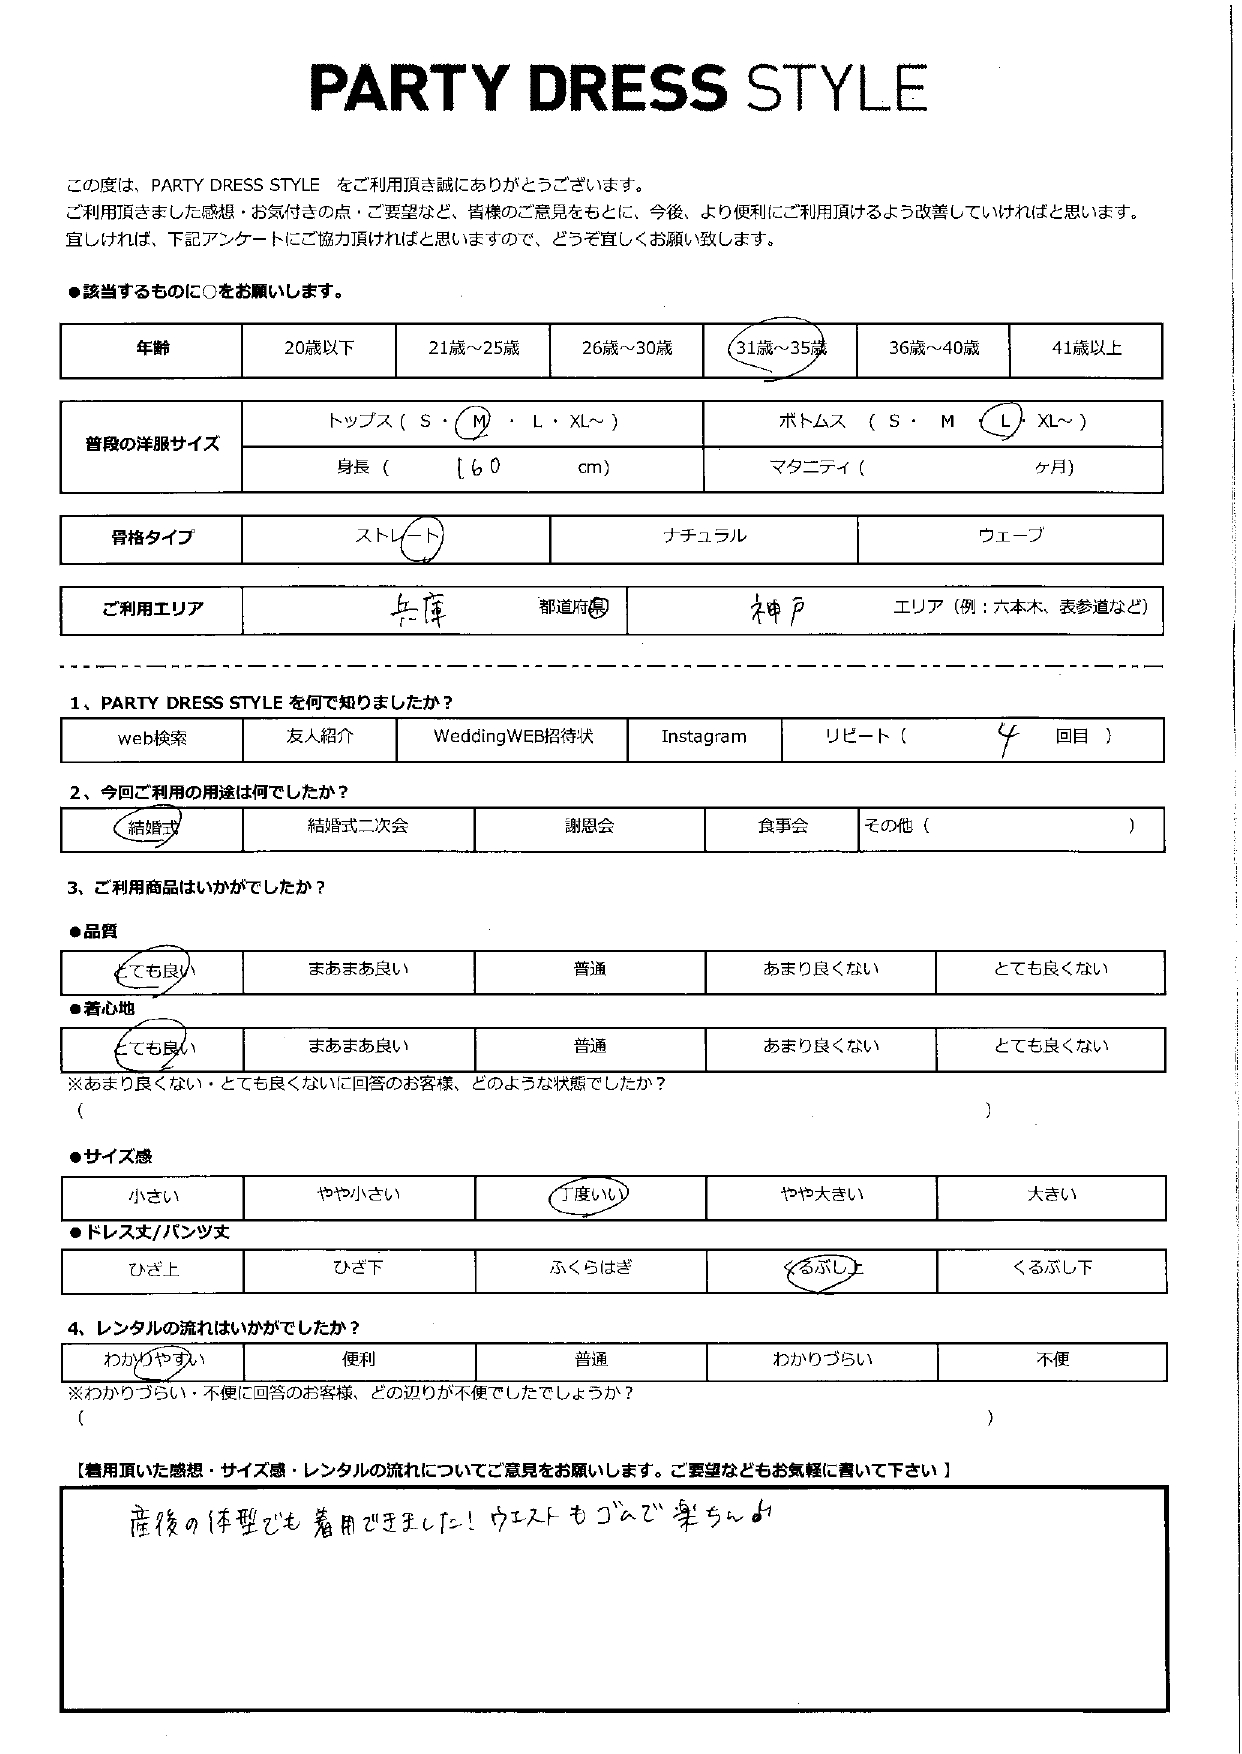 PARTY DRESS STYLE
この度は、PARTY DRESS STYLE をご利用頂き誠にありがとうございます。
ご利用頂きました感想・お気付きの点・ご要望など、皆様のご意見をもとに、今後、より便利にご利用頂けるよう改善していければと思います。
宜しければ、下記アンケートにご協力頂ければと思いますので、どうぞ宜しくお願い致します。
●該当するものに○をお願いします。
年齢 20歳以下 21歳～25歳 26歳～30歳 31歳～35歳 36歳～40歳 41歳以上
普段の洋服サイズ トップス ( S ・ M ・ L ・ XL～ ) ボトムス ( S ・ M ・ L ・ XL～ )
身長 ( 160 cm) マタニティ ( ヶ月)
骨格タイプ ストレート ナチュラル ウェーブ
ご利用エリア 兵庫 都道府県 神戸 エリア（例：六本木、表参道など）
1、PARTY DRESS STYLE を何で知りましたか？
web検索 友人紹介 WeddingWEB招待状 Instagram リピート ( 4 回目 )
2、今回ご利用の用途は何でしたか？
結婚式 結婚式二次会 謝恩会 食事会 その他 ( )
3、ご利用商品はいかがでしたか？
●品質
とても良い まあまあ良い 普通 あまり良くない とても良くない
●着心地
とても良い まあまあ良い 普通 あまり良くない とても良くない
※あまり良くない・とても良くないに回答のお客様、どのような状態でしたか？
( )
●サイズ感
小さい やや小さい 丁度いい やや大きい 大きい
●ドレス丈/パンツ丈
ひざ上 ひざ下 ふくらはぎ くるぶし上 くるぶし下
4、レンタルの流れはいかがでしたか？
わかりやすい 便利 普通 わかりづらい 不便
※わかりづらい・不便に回答のお客様、どの辺りが不便でしたでしょうか？
( )
【着用頂いた感想・サイズ感・レンタルの流れについてご意見をお願いします。ご要望などもお気軽に書いて下さい】
産後の体型でも着用できました！ウエストもゴムで楽ちん♪